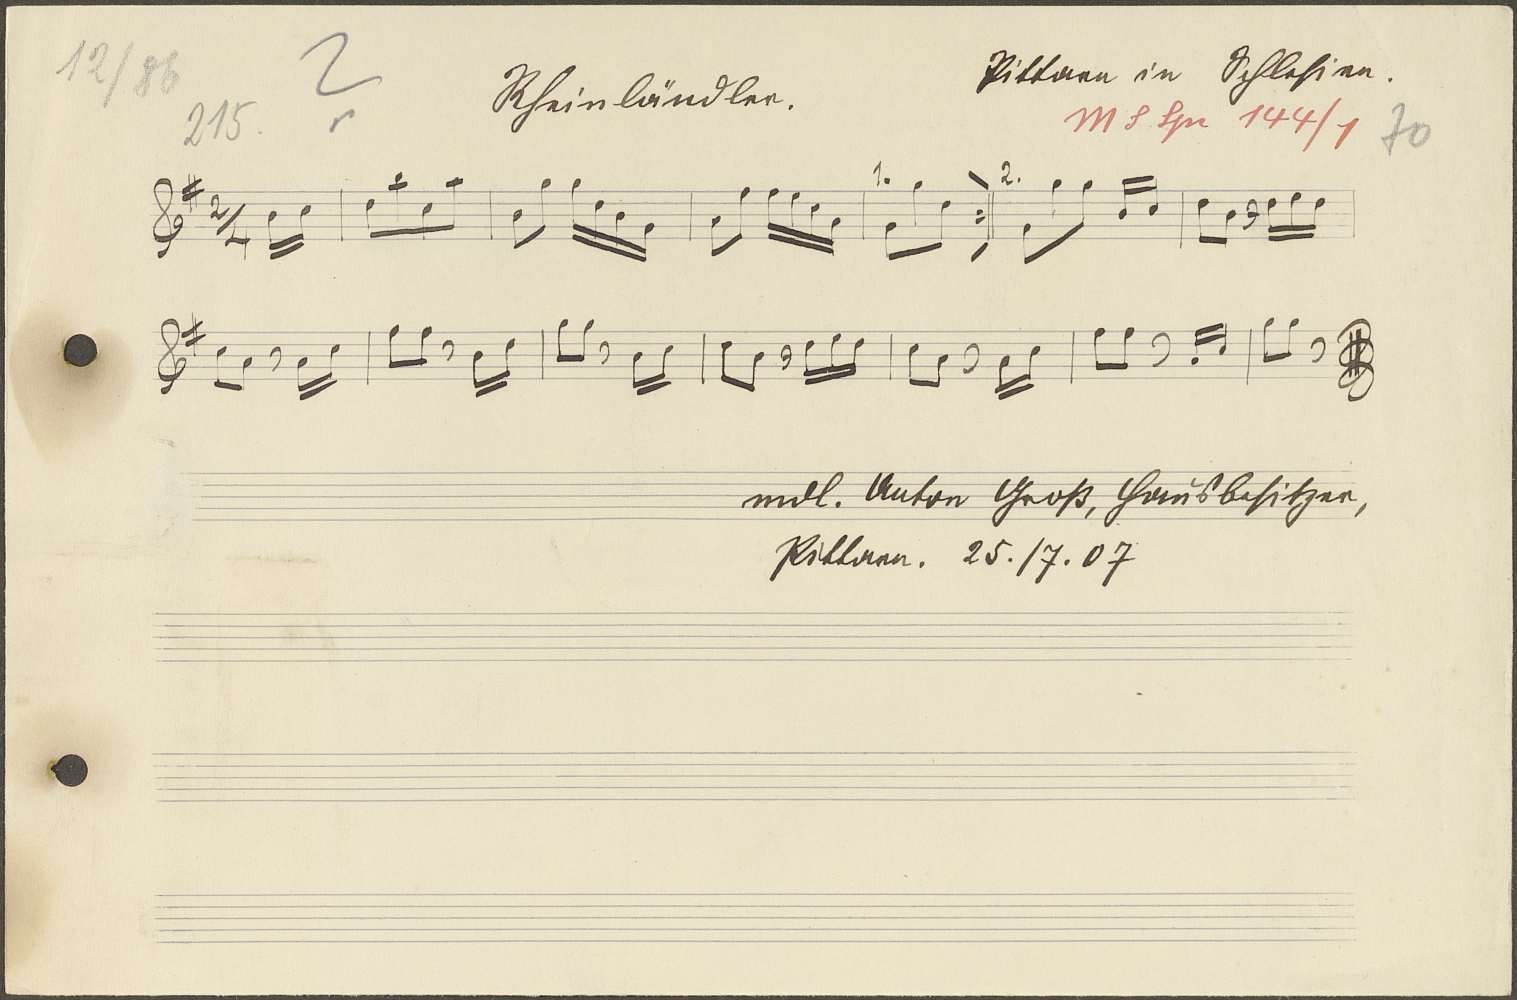 12/86
215.
2
r
Rheinländler.
Pittarn in Schlesien.
M S Spr 144/1 70
2/4
1.
2.
mdl. Anton Groß, Hausbesitzer,
Pittarn. 25./7.07